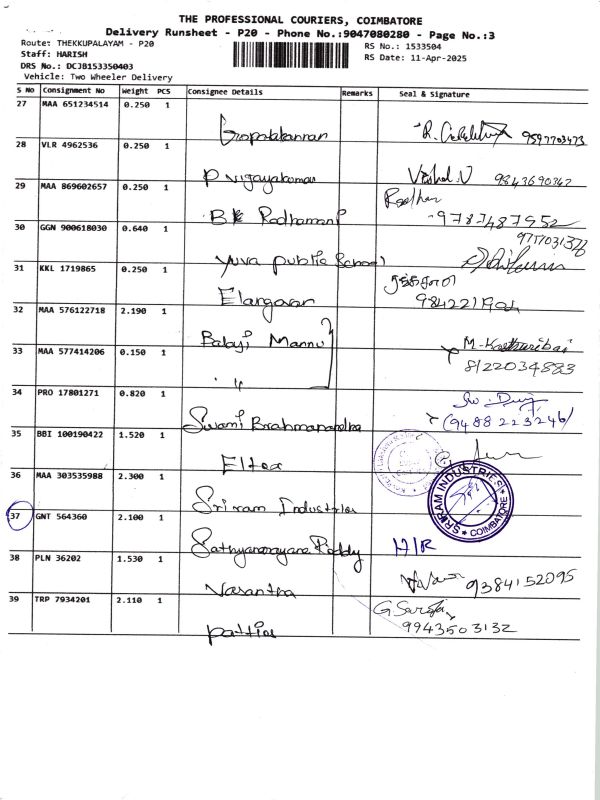 THE PROFESSIONAL COURIERS, COIMBATORE
Delivery Runsheet - P20 - Phone No.:9047080280 - Page No.:3
Route: THEKKUPALAYAM - P20
RS No.: 1533504
Staff: HARISH
RS Date: 11-Apr-2025
DRS No.: DCJB153350403
Vehicle: Two Wheeler Delivery
S No Consignment No Weight PCS Consignee Details Remarks Seal & Signature
27 MAA 651234514 0.250 1 Gopalakannan 9597703473
28 VLR 4962536 0.250 1 P vijayakumar Vishal.V 9843690362
29 MAA 869602657 0.250 1 B Radhamani Radha 9787487952
30 GGN 900618030 0.640 1 Yuva public School 9717031378
31 KKL 1719865 0.250 1 Elangovan 984221904
32 MAA 576122718 2.190 1 Balaji Mannu M-Kasthuribai
33 MAA 577414206 0.150 1 " 8122034883
34 PRO 17801271 0.820 1 Swami Brahmapandha (9488223246)
35 BBI 100190422 1.520 1 Eltex
36 MAA 303535988 2.300 1 Sriram Industries SRIRAM INDUSTRIES COIMBATORE
37 GNT 564360 2.100 1 Sathyanarayana Reddy H/R
38 PLN 36202 1.530 1 Vasantha 9384152095
39 TRP 7934201 2.110 1 pattior G. Saroja
9943503132